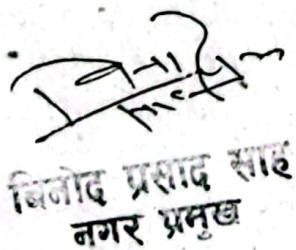 बिनोद प्रसाद साह
नगर प्रमुख